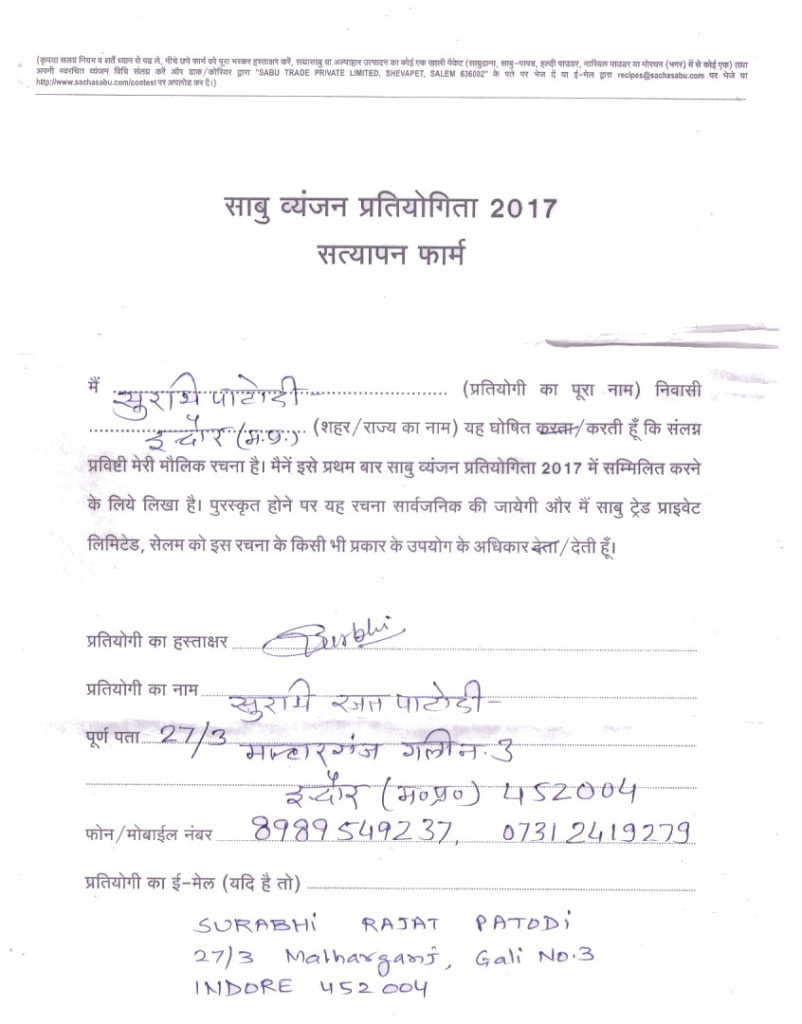 (कृपया सलग्न नियम व शर्तें ध्यान से पढ ले, नीचे छपे फार्म को पूरा भरकर हस्ताक्षर करें, सच्चासाबु या अल्पाहार उत्पादन का कोई एक खाली पैकेट (साबुदाना, साबु-पापड, हल्दी पाउडर, नारियल पाउडर या मोरधन (भगर) में से कोई एक) तथा
अपनी स्वरचित व्यंजन विधि संलग्न करें और डाक/कोरियर द्वारा "SABU TRADE PRIVATE LIMITED, SHEVAPET, SALEM 636002" के पते पर भेज दें या ई-मेल द्वारा recipes@sachasabu.com पर भेजे या
http://www.sachasabu.com/contest पर अपलोड कर दें।)
साबु व्यंजन प्रतियोगिता 2017
सत्यापन फार्म
मैं सुरभि पाटोदी (प्रतियोगी का पूरा नाम) निवासी
इन्दौर (म.प्र.) (शहर/राज्य का नाम) यह घोषित करता/करती हूँ कि संलग्न
प्रविष्टी मेरी मौलिक रचना है। मैनें इसे प्रथम बार साबु व्यंजन प्रतियोगिता 2017 में सम्मिलित करने
के लिये लिखा है। पुरस्कृत होने पर यह रचना सार्वजनिक की जायेगी और मैं साबु ट्रेड प्राइवेट
लिमिटेड, सेलम को इस रचना के किसी भी प्रकार के उपयोग के अधिकार देता/देती हूँ।
प्रतियोगी का हस्ताक्षर Surbhi
प्रतियोगी का नाम सुरभि रजत पाटोदी
पूर्ण पता 27/3 मल्हारगंज गली न. 3
इन्दौर (म०प्र०) 452004
फोन/मोबाईल नंबर 8989549237, 07312419279
प्रतियोगी का ई-मेल (यदि है तो)
SURABHI RAJAT PATODI
27/3 Malharganj, Gali No.3
INDORE 452004